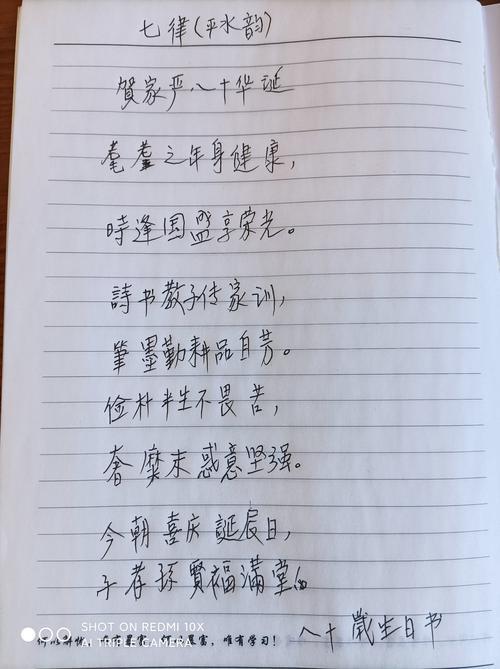 七律(平水韵)
賀家严八十华诞
耄耋之年身健康，
時逢国盛享荣光。
詩书教子传家训，
筆墨勤耕品自芳。
俭朴半生不畏苦，
奢糜未惑意坚强。
今朝喜庆誕辰日，
子孝孫賢福满堂。
八十歲生日书
唯有学习！
SHOT ON REDMI 10X
AI TRIPLE CAMERA